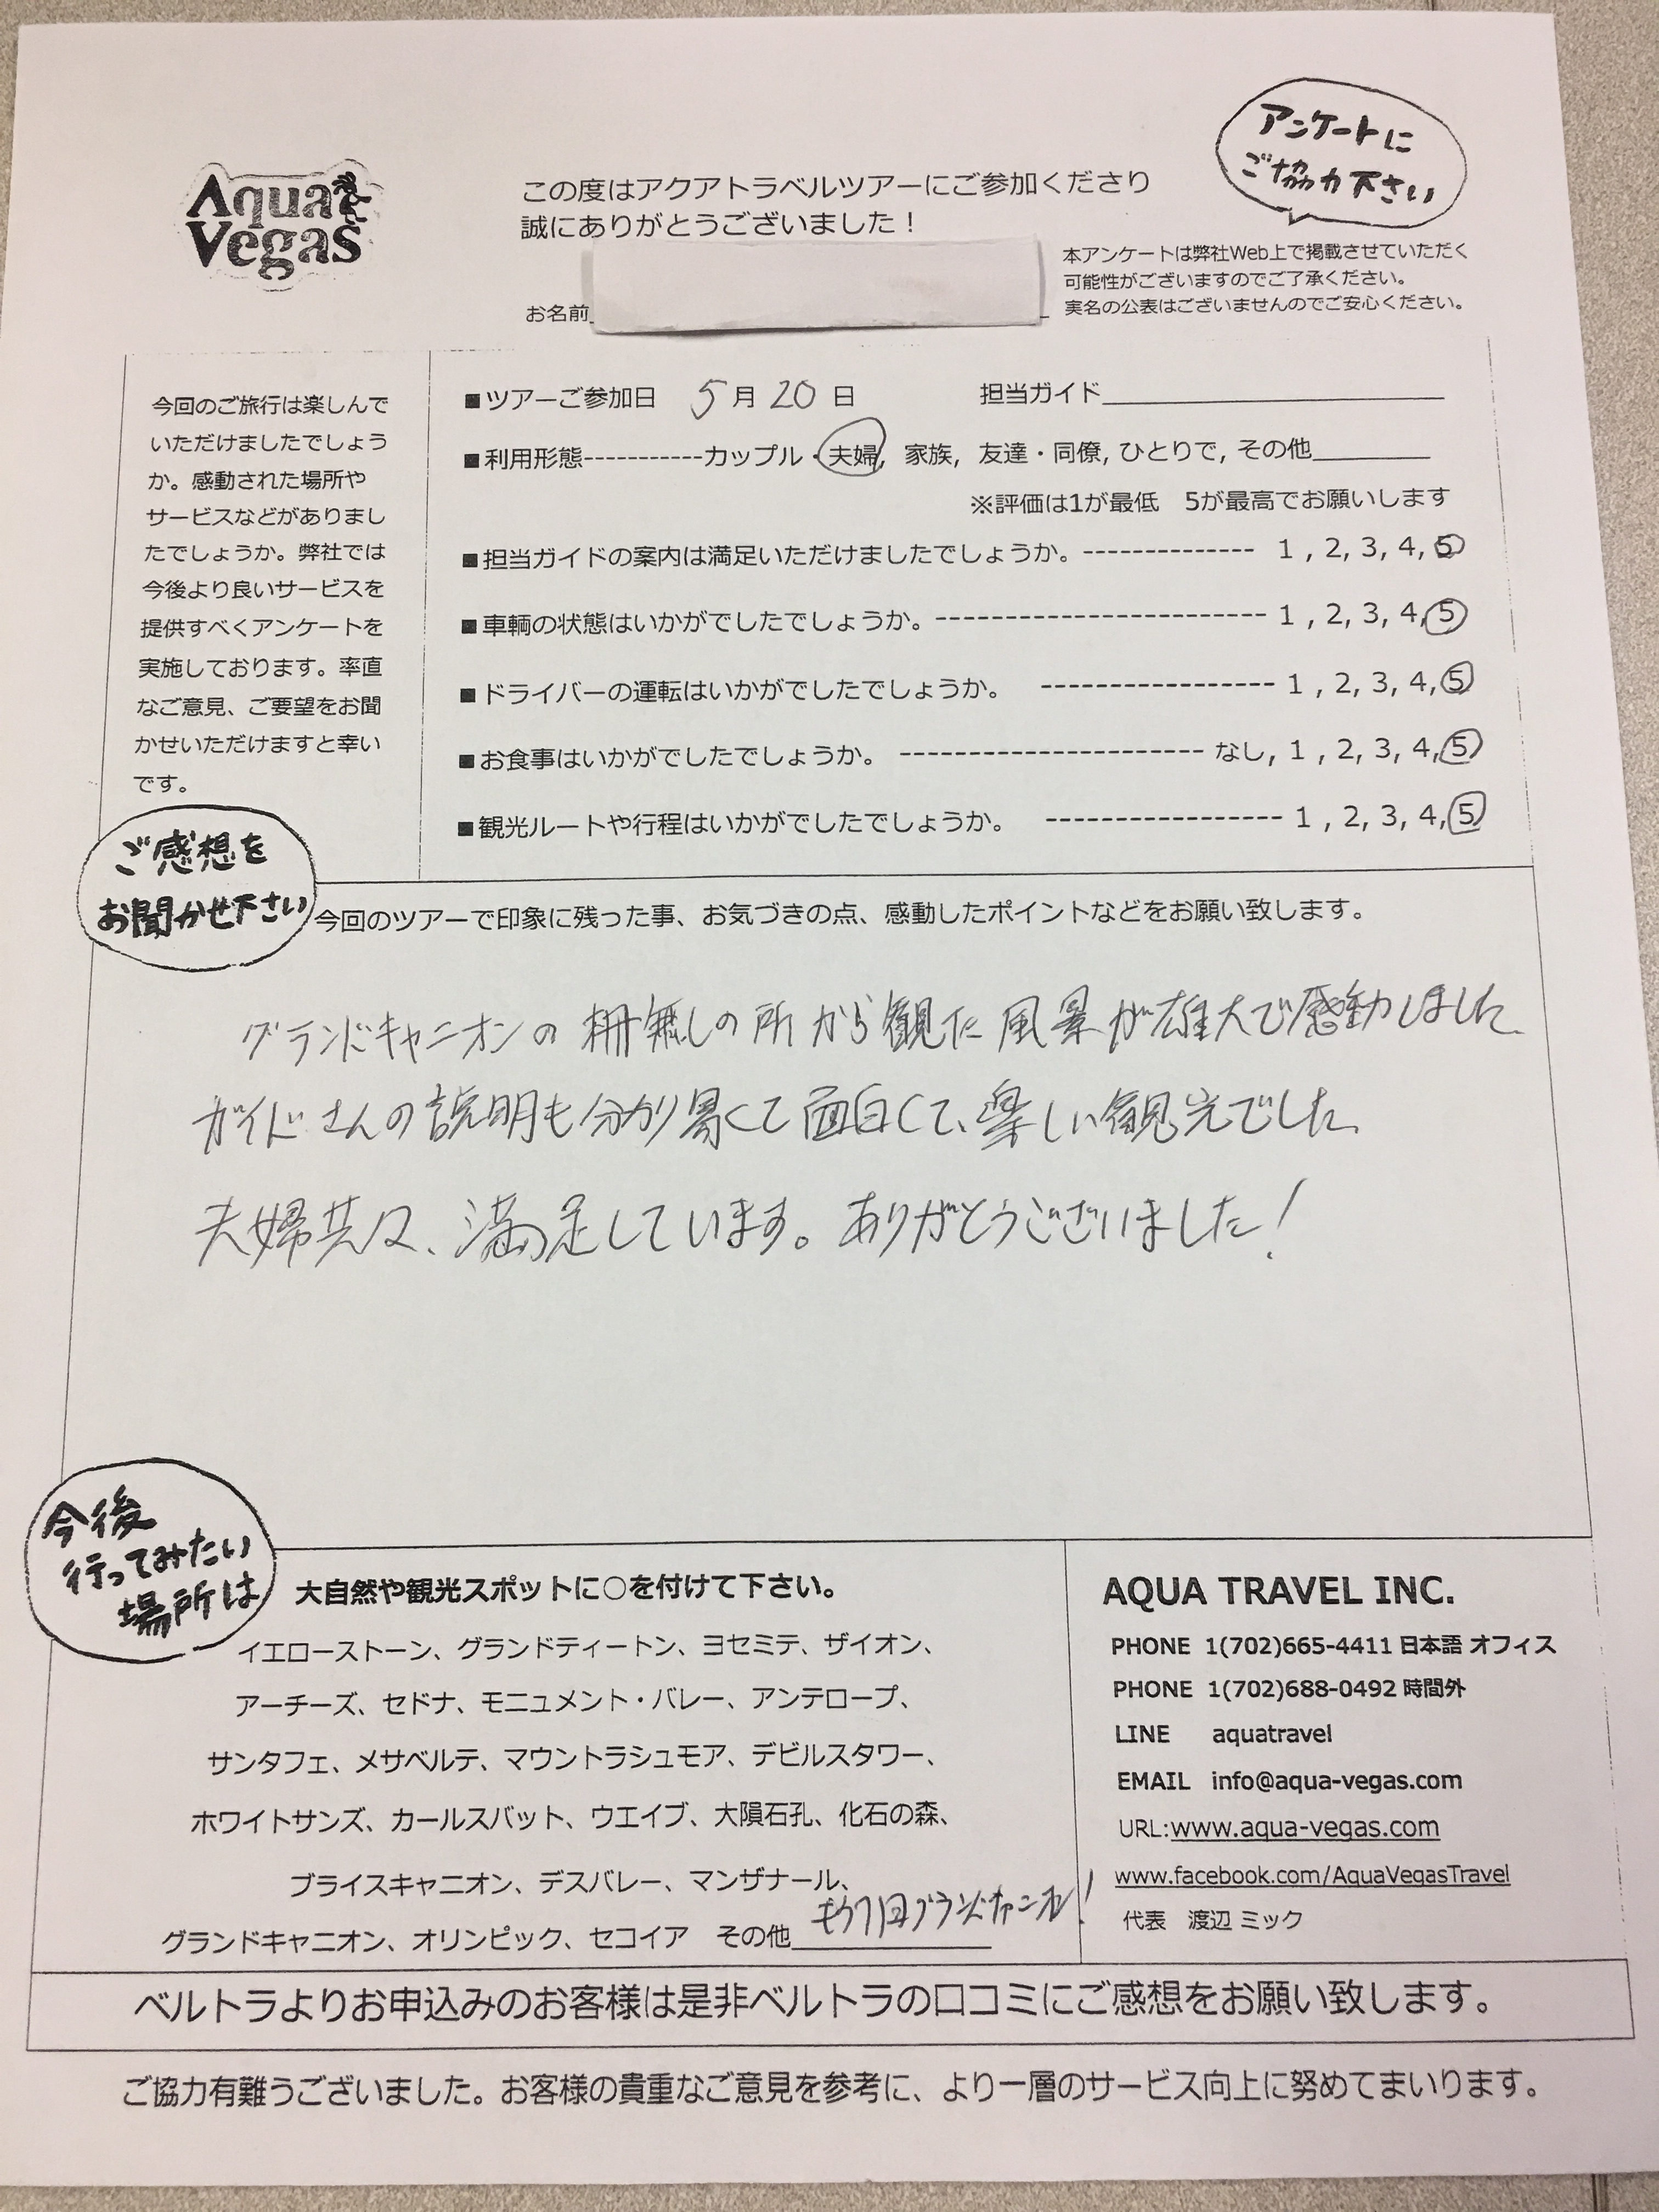 Aqua
Vegas
この度はアクアトラベルツアーにご参加くださり
誠にありがとうございました！
アンケートに
ご協力下さい
本アンケートは弊社Web上で掲載させていただく
可能性がございますのでご了承ください。
実名の公表はございませんのでご安心ください。
お名前
今回のご旅行は楽しんで
いただけましたでしょう
か。感動された場所や
サービスなどがありまし
たでしょうか。弊社では
今後より良いサービスを
提供すべくアンケートを
実施しております。率直
なご意見、ご要望をお聞
かせいただけますと幸い
です。
■ツアーご参加日 5月20日 担当ガイド
■利用形態-----------カップル・夫婦, 家族, 友達・同僚, ひとりで, その他
※評価は1が最低 5が最高でお願いします
■担当ガイドの案内は満足いただけましたでしょうか。-------------- 1 , 2, 3, 4, 5
■車輌の状態はいかがでしたでしょうか。----------------------- 1 , 2, 3, 4, 5
■ドライバーの運転はいかがでしたでしょうか。 ----------------- 1 , 2, 3, 4, 5
■お食事はいかがでしたでしょうか。 --------------------- なし, 1 , 2, 3, 4, 5
■観光ルートや行程はいかがでしたでしょうか。 ----------------- 1 , 2, 3, 4, 5
ご感想を
お聞かせ下さい
今回のツアーで印象に残った事、お気づきの点、感動したポイントなどをお願い致します。
グランドキャニオンの柵無しの所から観た風景が雄大で感動しました。
ガイドさんの説明も分かり易くて面白くて、楽しい観光でした。
夫婦共々、満足しています。ありがとうございました！
今後
行ってみたい
場所は
大自然や観光スポットに○を付けて下さい。
イエローストーン、グランドティートン、ヨセミテ、ザイオン、
アーチーズ、セドナ、モニュメント・バレー、アンテロープ、
サンタフェ、メサベルテ、マウントラシュモア、デビルスタワー、
ホワイトサンズ、カールスバット、ウエイブ、大隕石孔、化石の森、
ブライスキャニオン、デスバレー、マンザナール、
グランドキャニオン、オリンピック、セコイア その他 もう1回グランドキャニオン！
AQUA TRAVEL INC.
PHONE 1(702)665-4411 日本語 オフィス
PHONE 1(702)688-0492 時間外
LINE aquatravel
EMAIL info@aqua-vegas.com
URL:www.aqua-vegas.com
www.facebook.com/AquaVegasTravel
代表 渡辺 ミック
ベルトラよりお申込みのお客様は是非ベルトラの口コミにご感想をお願い致します。
ご協力有難うございました。お客様の貴重なご意見を参考に、より一層のサービス向上に努めてまいります。